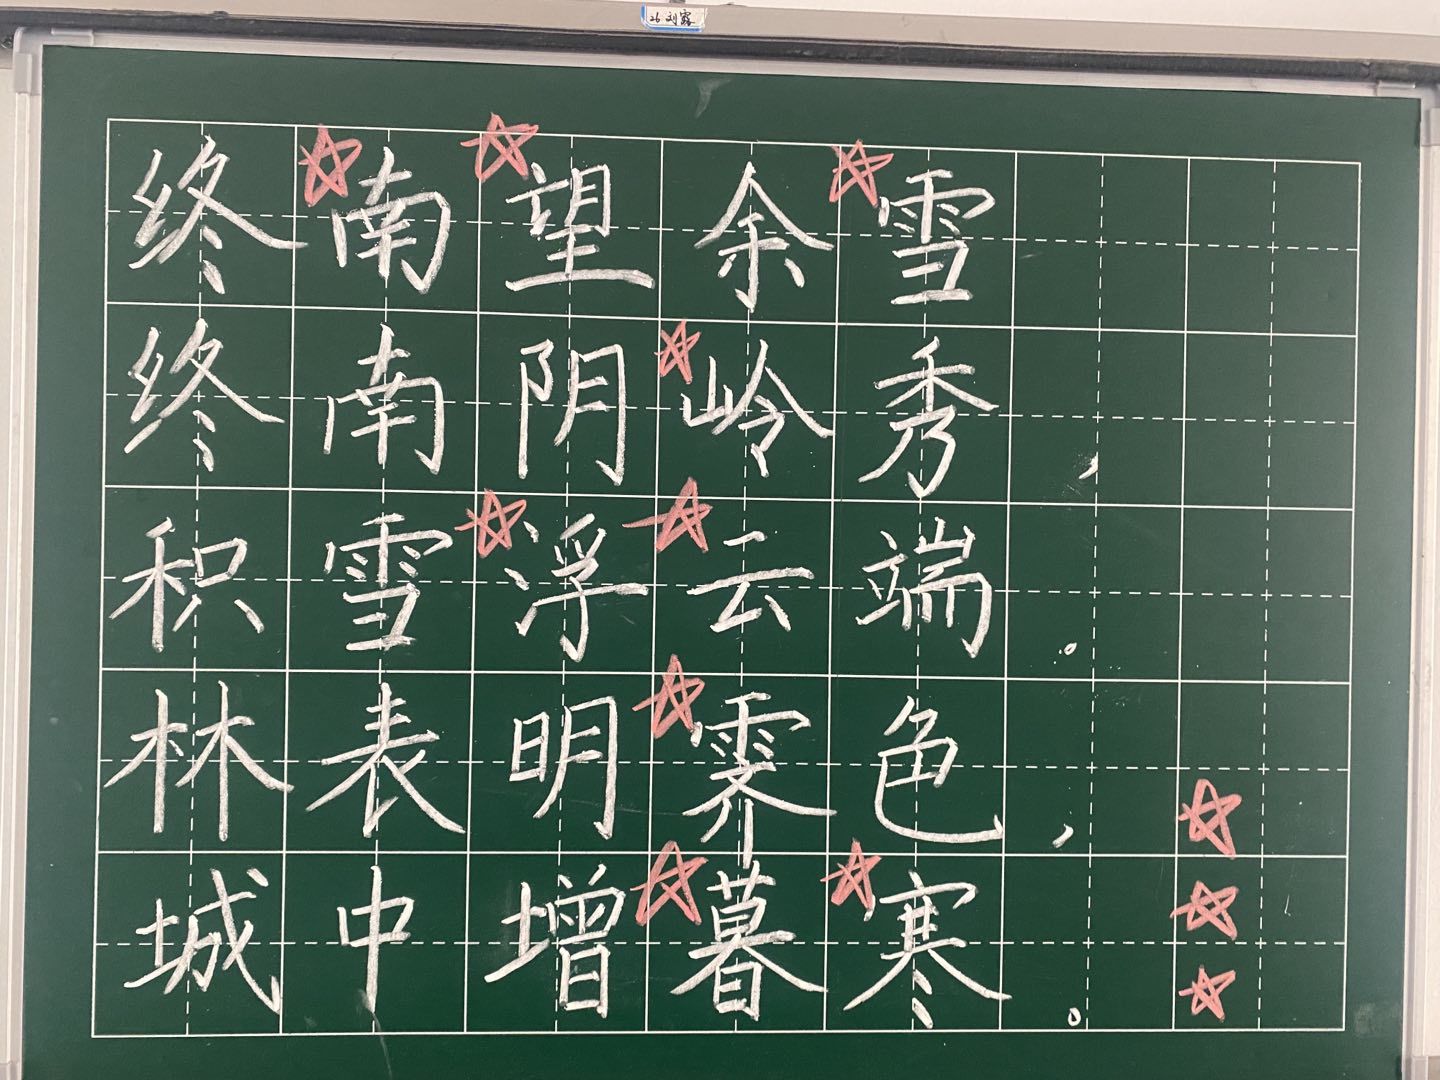 26 刘露
终南望余雪
终南阴岭秀，
积雪浮云端。
林表明霁色，
城中增暮寒。